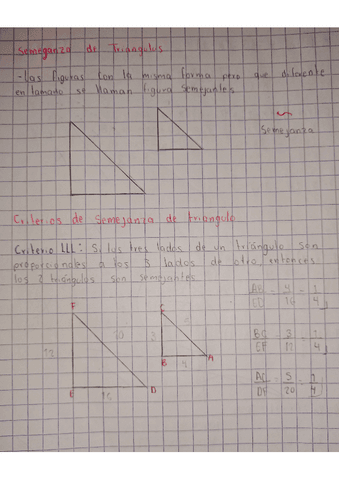 Semeganza de Triangulos
-Las figuras con la misma forma pero que diferente
en tamaño se llaman figura semejantes
~
Semejanza
Criterios de semejanza de triangulo
Criterio LLL: Si los tres lados de un triángulo son
proporcionales a los 3 lados de otro entences
los 2 triángulos son semejantes
AB/ED = 4/16 = 1/4
BC/EF = 3/12 = 1/4
AC/DF = 5/20 = 1/4
F
C
20
12
3
B
A
4
E
D
16